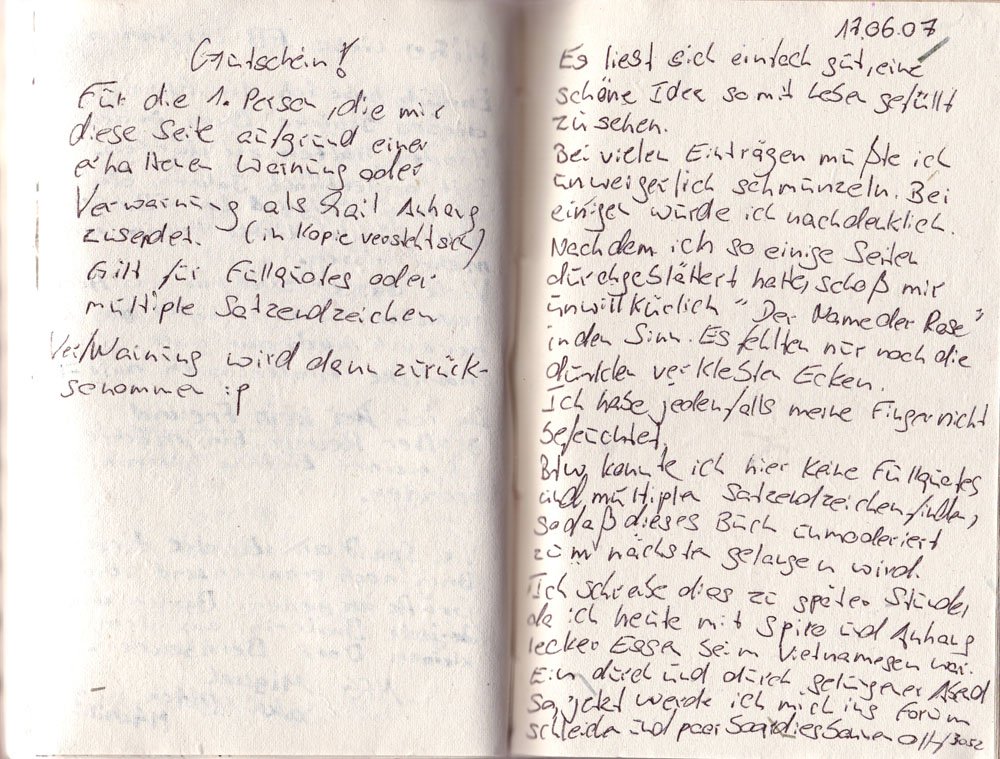 Gutschein!
Für die 1. Person, die mir
diese Seite aufgrund einer
erhaltenen Warnung oder
Verwarnung als Mail Anhang
zusendet. (in Kopie versteht sich)
Gilt für Fullquotes oder
multiple Satzendzeichen
Ver/Warnung wird dann zurück-
genommen :p
17.06.07
Es liest sich einfach gut, eine
schöne Idee so mit Leben gefüllt
zu sehen.
Bei vielen Einträgen mußte ich
unweigerlich schmunzeln. Bei
einigen wurde ich nachdenklich.
Nachdem ich so einige Seiten
durchgeblättert hatte, schoß mir
unwillkürlich "Der Name der Rose"
in den Sinn. Es fehlten nur noch die
dunklen verklebten Ecken.
Ich habe jedenfalls meine Finger nicht
befeuchtet.
Btw, konnte ich hier keine Fullquotes
und multiplen Satzendzeichen finden,
sodaß dieses Buch unmoderiert
zum nächsten gelangen wird.
Ich schreibe dies zu später Stunde,
da ich heute mit Spiro und Anhang
lecker Essen beim Vietnamesen war.
Ein durch und durch gelungener Abend
So, jetzt werde ich mich ins Forum
schleichen und paar